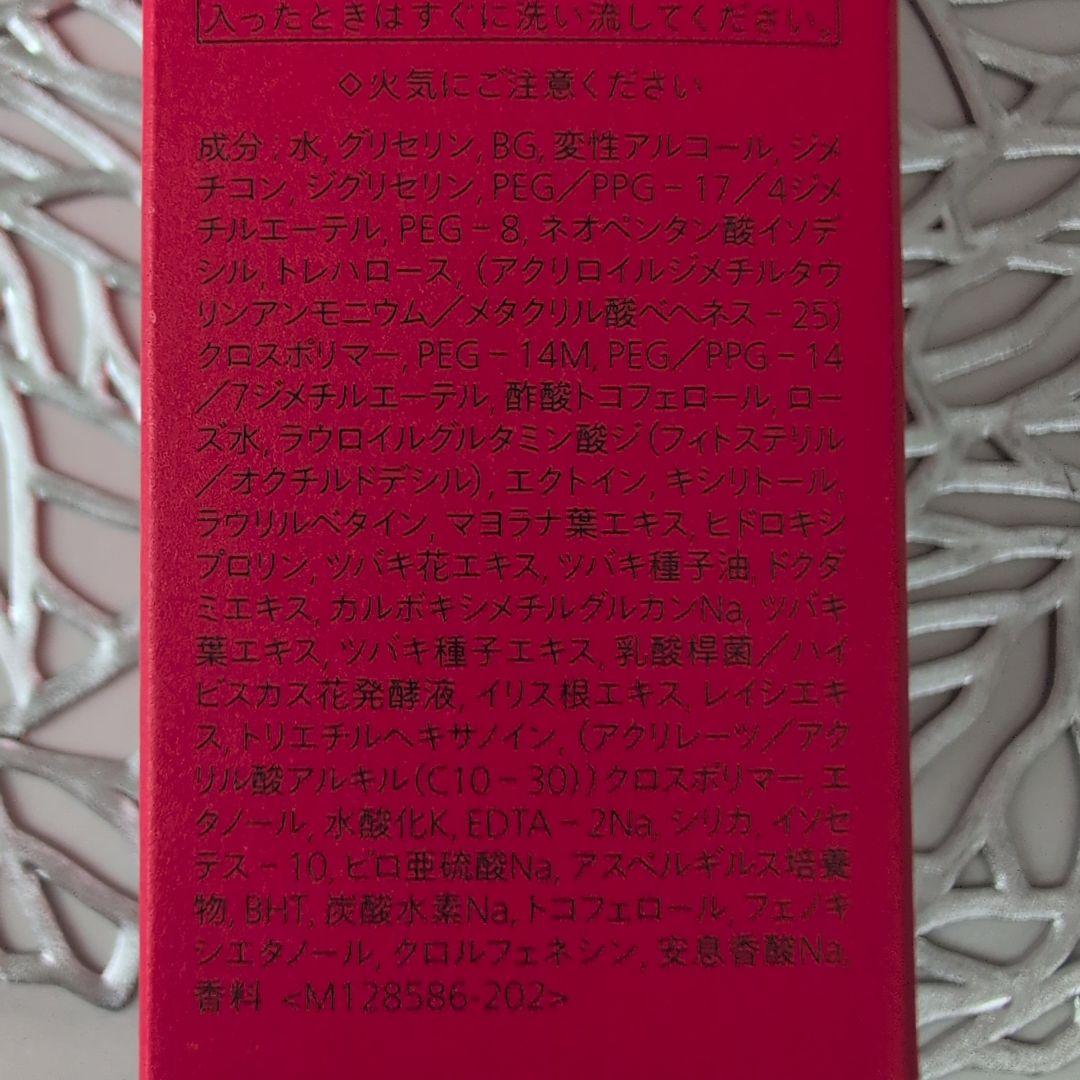 入ったときはすぐに洗い流してください。
◇火気にご注意ください
成分：水, グリセリン, BG, 変性アルコール, ジメ
チコン, ジグリセリン, PEG／PPG－17／4ジメ
チルエーテル, PEG－8, ネオペンタン酸イソデ
シル, トレハロース, （アクリロイルジメチルタウ
リンアンモニウム／メタクリル酸ベヘネス－25）
クロスポリマー, PEG－14M, PEG／PPG－14
／7ジメチルエーテル, 酢酸トコフェロール, ロー
ズ水, ラウロイルグルタミン酸ジ（フィトステリル
／オクチルドデシル）, エクトイン, キシリトール,
ラウリルベタイン, マヨラナ葉エキス, ヒドロキシ
プロリン, ツバキ花エキス, ツバキ種子油, ドクダ
ミエキス, カルボキシメチルグルカンNa, ツバキ
葉エキス, ツバキ種子エキス, 乳酸桿菌／ハイ
ビスカス花発酵液, イリス根エキス, レイシエキ
ス, トリエチルヘキサノイン, （アクリレーツ／アク
リル酸アルキル（C10－30））クロスポリマー, エ
タノール, 水酸化K, EDTA－2Na, シリカ, イソセ
テス－10, ピロ亜硫酸Na, アスペルギルス培養
物, BHT, 炭酸水素Na, トコフェロール, フェノキ
シエタノール, クロルフェネシン, 安息香酸Na,
香料 <M128586-202>